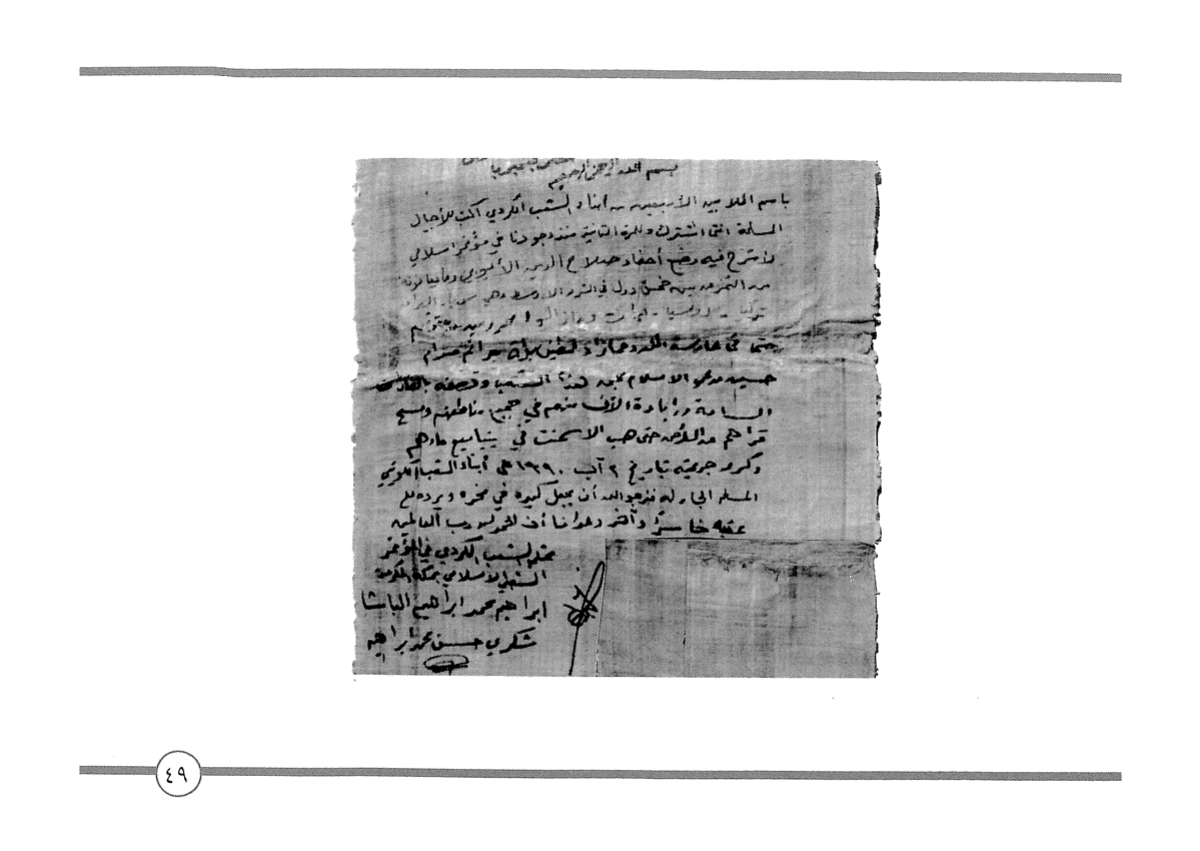 بسم الله الرحمن الرحيم
باسم الملايين الأربعين من أبناء الشعب الكردي أكتب للأجيال
المسلمة انني اشترك وللمرة الثانية منذ وجودنا في مؤتمر اسلامي
لاشرح فيه وضع أحفاد صلاح الدين الأيوبي وما يعانونه
من التمزق بين خمس دول في الشرق الاوسط وهي سوريا العراق
تركيا - روسيا - ايران
حتى في ممارسة جرائم صدام
حسين مدعي الاسلام بحق هذا الشعب وقصفه بالغازات
السامة وإبادة الألاف منهم في جميع مناطقهم ومسح
قراهم من الأرض حتى صب الاسمنت في ينابيع ماءهم
وكرر جريمته بتاريخ ٢ آب ١٩٩٠ على أبناء الشعب الكويتي
المسلم الجار له فندعو الله أن يجعل كيده في نحره ويرده على
عقبه خاسرًا وآخر دعوانا أن الحمد لله رب العالمين
ممثل الشعب الكردي في المؤتمر
الشعبي الاسلامي بمكة المكرمة
ابراهيم محمد ابراهيم الباشا
شكري حسين محمد ابراهيم
٤٩